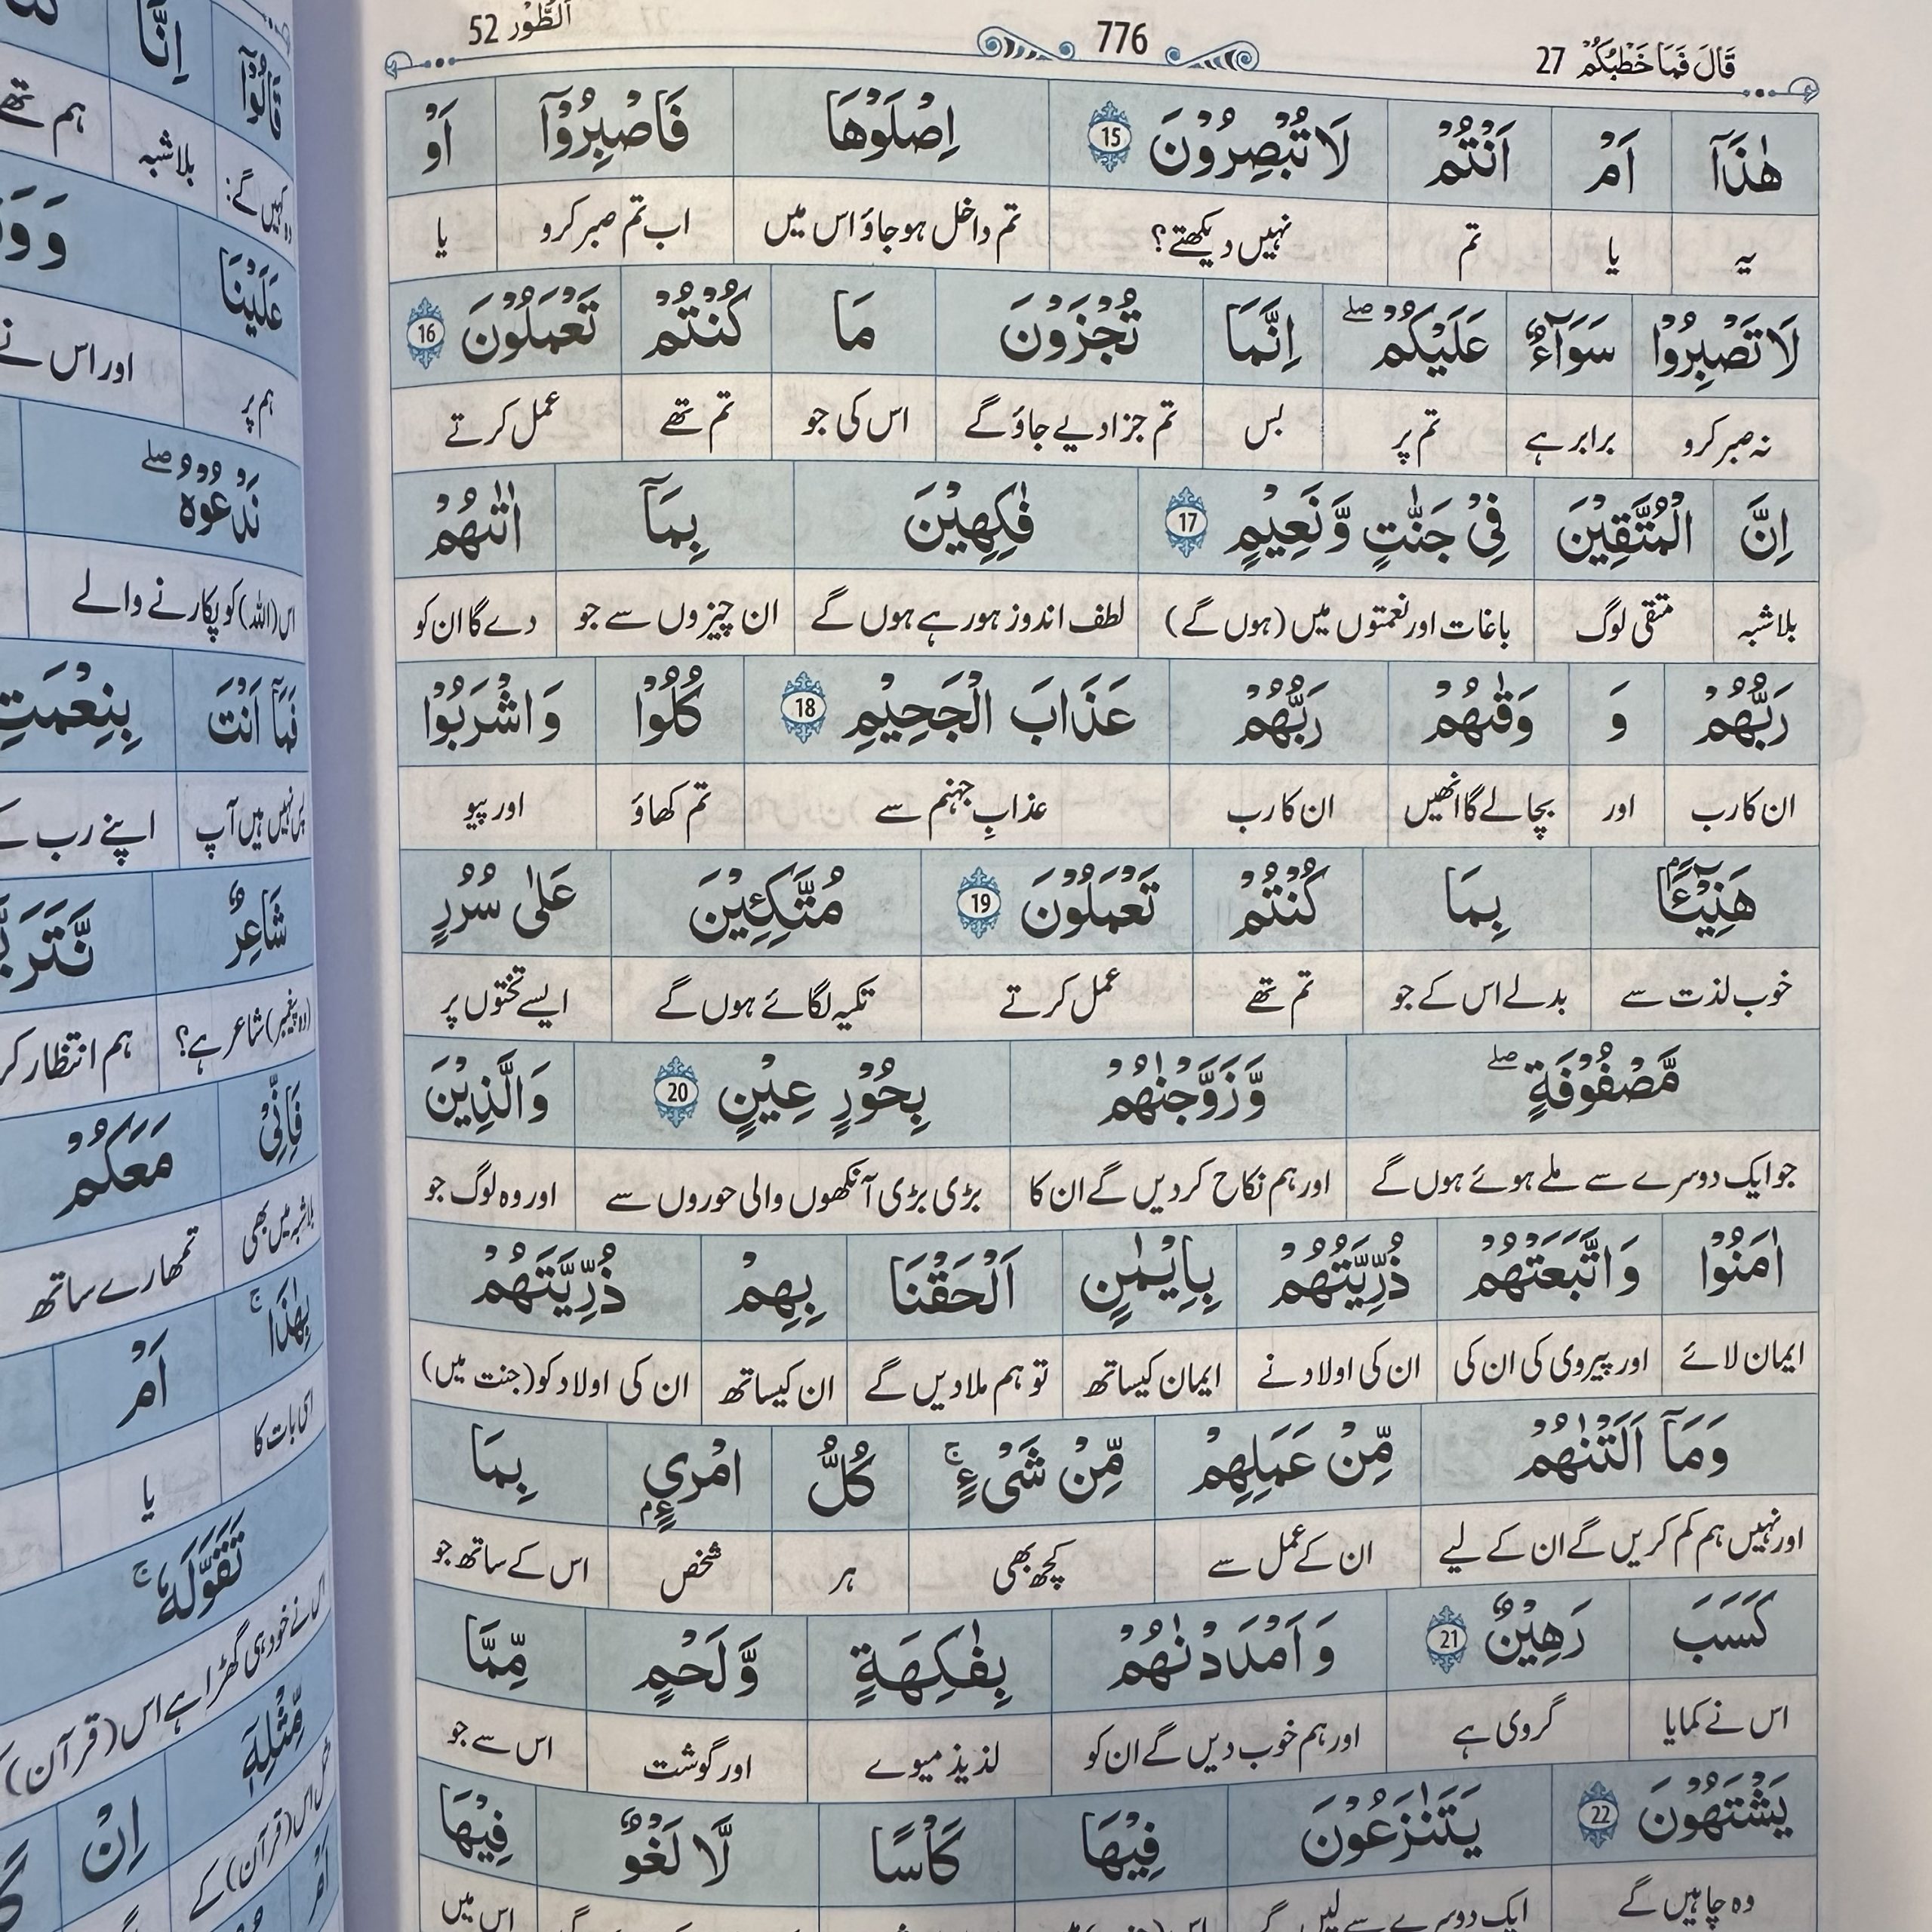 قَالَ فَمَا خَطْبُكُمْ 27 776 اَلطُّوْر 52
هٰذَآ اَمْ اَنْتُمْ لَا تُبْصِرُوْنَ 15 اِصْلَوْهَا فَاصْبِرُوْٓا اَوْ
یہ یا تم نہیں دیکھتے؟ تم داخل ہو جاؤ اس میں اب تم صبر کرو یا
لَا تَصْبِرُوْا سَوَآءٌ عَلَيْكُمْ ۖ اِنَّمَا تُجْزَوْنَ مَا كُنْتُمْ تَعْمَلُوْنَ 16
نہ صبر کرو برابر ہے تم پر بس تم جزا دیے جاؤ گے اس کی جو تم تھے عمل کرتے
اِنَّ الْمُتَّقِيْنَ فِيْ جَنّٰتٍ وَّنَعِيْمٍ 17 فٰكِهِيْنَ بِمَآ اٰتٰىهُمْ
بلاشبہ متقی لوگ باغات اور نعمتوں میں (ہوں گے) لطف اندوز ہو رہے ہوں گے ان چیزوں سے جو دے گا ان کو
رَبُّهُمْ وَ وَقٰىهُمْ رَبُّهُمْ عَذَابَ الْجَحِيْمِ 18 كُلُوْا وَاشْرَبُوْا
ان کا رب اور بچا لے گا انھیں ان کا رب عذابِ جہنم سے تم کھاؤ اور پیو
هَنِيْٓـًٔۢا بِمَا كُنْتُمْ تَعْمَلُوْنَ 19 مُتَّكِـِٕيْنَ عَلٰى سُرُرٍ
خوب لذت سے بدلے اس کے جو تم تھے عمل کرتے تکیہ لگائے ہوں گے ایسے تختوں پر
مَّصْفُوْفَةٍ ۖ وَّزَوَّجْنٰهُمْ بِحُوْرٍ عِيْنٍ 20 وَالَّذِيْنَ
جو ایک دوسرے سے ملے ہوئے ہوں گے اور ہم نکاح کر دیں گے ان کا بڑی بڑی آنکھوں والی حوروں سے اور وہ لوگ جو
اٰمَنُوْا وَاتَّبَعَتْهُمْ ذُرِّيَّتُهُمْ بِاِيْمٰنٍ اَلْحَقْنَا بِهِمْ ذُرِّيَّتَهُمْ
ایمان لائے اور پیروی کی ان کی ان کی اولاد نے ایمان کیساتھ تو ہم ملا دیں گے ان کیساتھ ان کی اولاد کو (جنت میں)
وَمَآ اَلَتْنٰهُمْ مِّنْ عَمَلِهِمْ مِّنْ شَيْءٍ ۚ كُلُّ امْرِئٍۢ بِمَا
اور نہیں ہم کم کریں گے ان کے لیے ان کے عمل سے کچھ بھی ہر شخص اس کے ساتھ جو
كَسَبَ رَهِيْنٌ 21 وَاَمْدَدْنٰهُمْ بِفٰكِهَةٍ وَّلَحْمٍ مِّمَّا
اس نے کمایا گروی ہے اور ہم خوب دیں گے ان کو لذیذ میوے اور گوشت اس سے جو
يَشْتَهُوْنَ 22 يَتَنٰزَعُوْنَ فِيْهَا كَاْسًا لَّا لَغْوٌ فِيْهَا
وہ چاہیں گے ایک دوسرے سے لیں گے اس میں
قَالُوْٓا اِنَّا
وہ کہیں گے: بلاشبہ ہم تھے
عَلَيْنَا
ہم پر اور اس نے
نَدْعُوْهُ ۖ
اس (اللہ) کو پکارنے والے
فَمَآ اَنْتَ بِنِعْمَتِ
پس نہیں ہیں آپ اپنے رب کے
شَاعِرٌ
(وہ پیغمبر) شاعر ہے؟ ہم انتظار کر
فَاِنِّيْ مَعَكُمْ
بلاشبہ میں بھی تمھارے ساتھ
بِهٰذَآ ۚ اَمْ
اسی بات کا یا
تَقَوَّلَهٗ ۚ
اس نے خود ہی گھڑا ہے اس (قرآن)
مِّثْلِهٖٓ اِنْ
اس (قرآن) کے